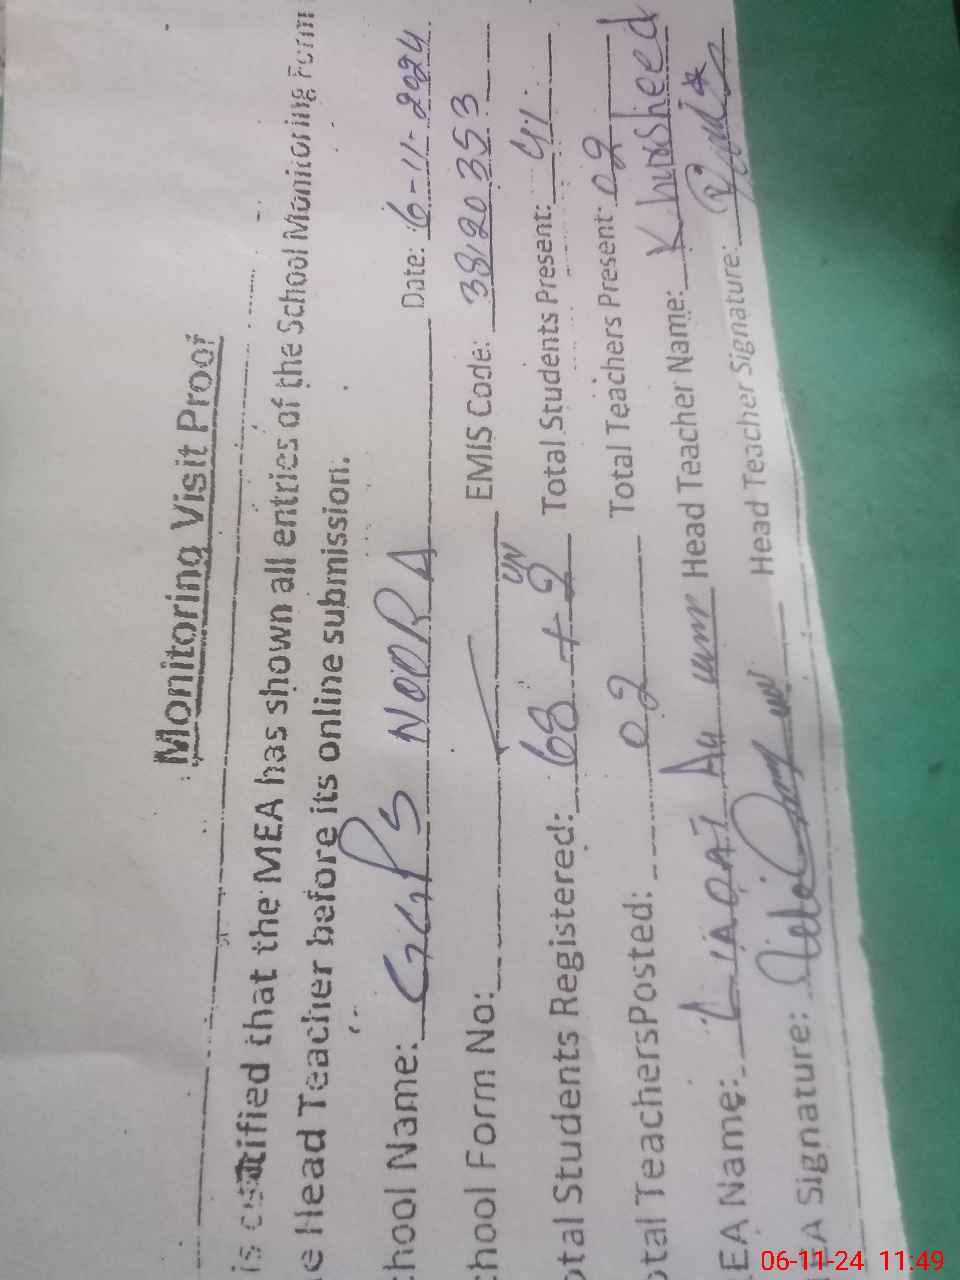 Monitoring Visit Proof
is certified that the MEA has shown all entries of the School Monitoring Form
e Head Teacher before its online submission.
chool Name: GGPS NOORA Date: 6-11-2024
chool Form No: EMIS Code: 38120353
otal Students Registered: 68 + 2 UN Total Students Present: 41
otal TeachersPosted: 02 Total Teachers Present: 02
EA Name: LIAQAT Ali Head Teacher Name: Khursheed
EA Signature: Head Teacher Signature:
06-11-24 11:49